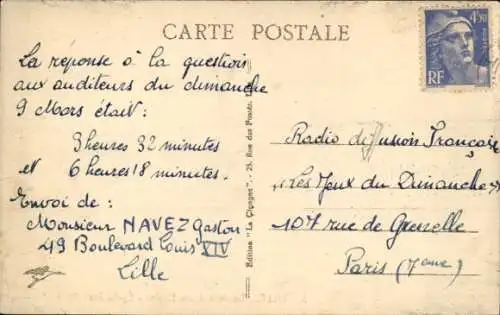 CARTE POSTALE
La réponse à la question
aux auditeurs du dimanche
9 Mars était:
3 heures 32 minutes
et 6 heures 18 minutes.
Envoi de:
Monsieur NAVEZ Gaston
49 Boulevard Louis XIV
Lille
Edition "La Cigogne" - 25, Rue des Fossés,
4f50
RF
Radio diffusion Française
"Les Jeux du Dimanche"
107 rue de Grenelle
Paris (7eme)